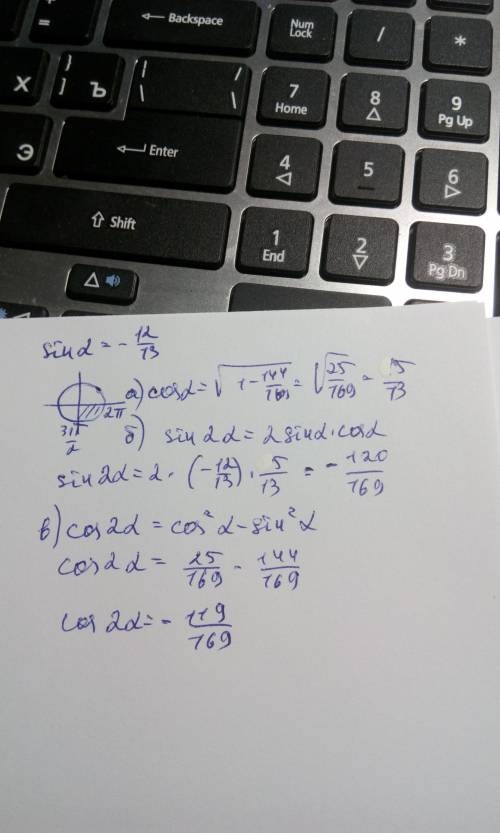 + = Backspace Num Lock / *
} ] Ъ | \ / \ 7 Home 8 9 Pg Up
Х
Э Enter 4 5 6
Shift 1 End 2 3 Pg Dn
sin α = - 12/13
3π/2 2π
а) cos α = √(1 - 144/169) = √(25/169) = 5/13
б) sin 2α = 2 sin α · cos α
sin 2α = 2 · (- 12/13) · 5/13 = - 120/169
в) cos 2α = cos² α - sin² α
cos 2α = 25/169 - 144/169
cos 2α = - 119/169